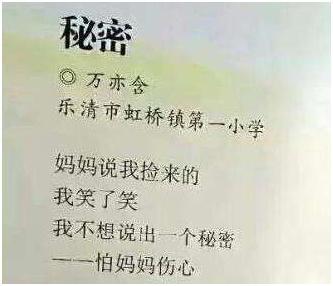 秘密
◎ 万亦含
乐清市虹桥镇第一小学
妈妈说我捡来的
我笑了笑
我不想说出一个秘密
——怕妈妈伤心